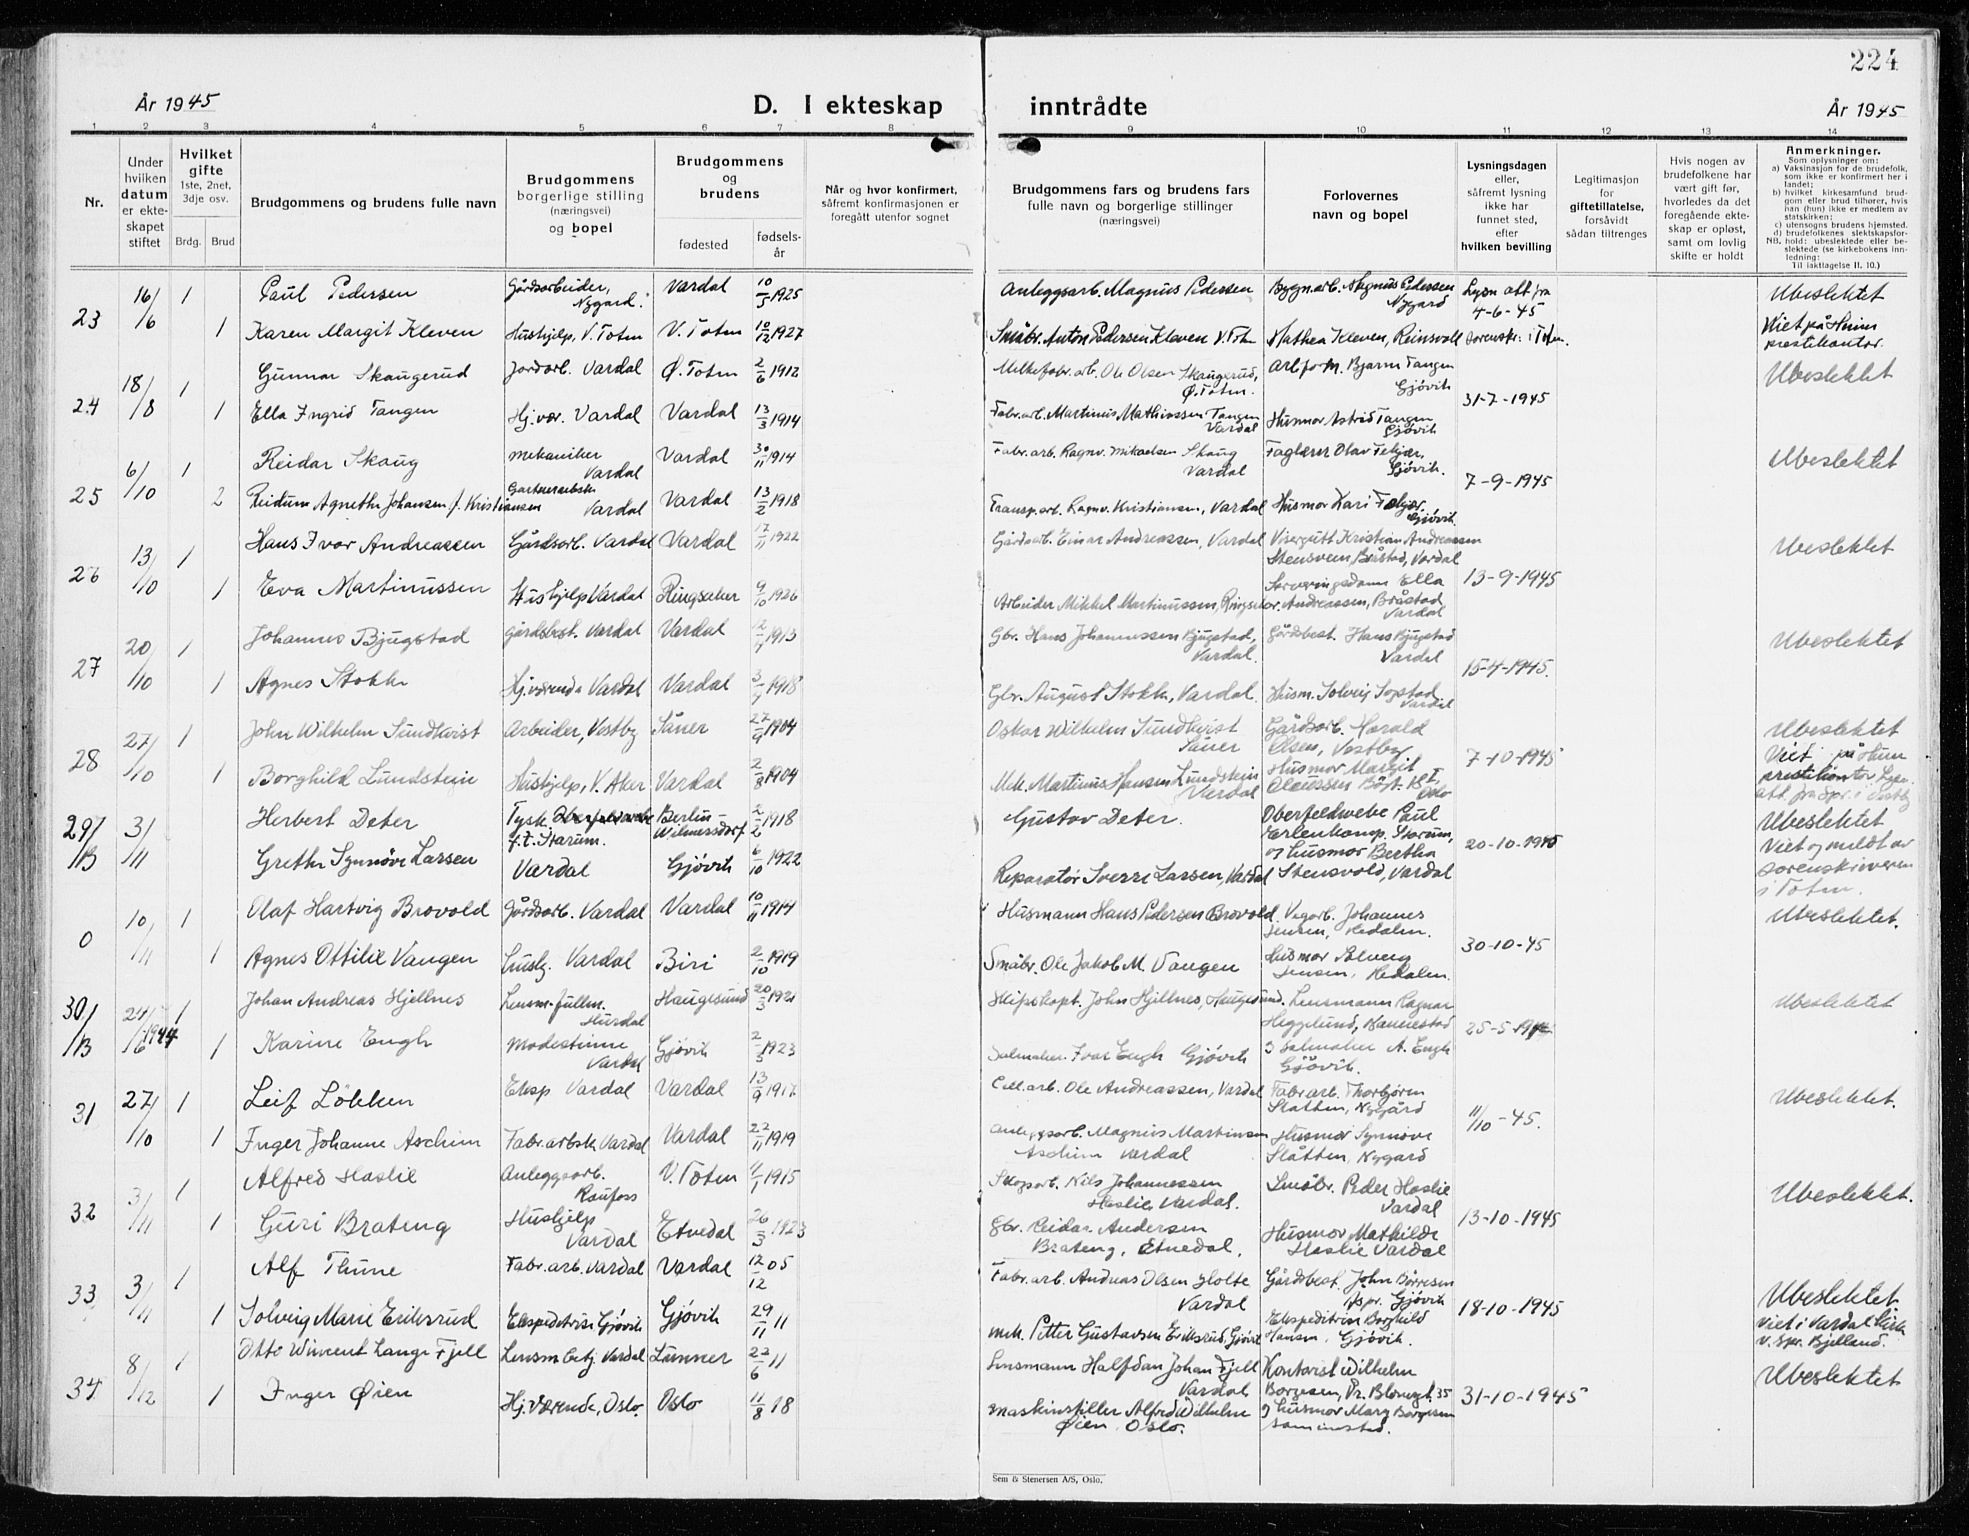 224
År 1945
D. I ekteskap
inntrådte
År 1945
1 2 3 4 5 6 7 8 9 10 11 12 13 14
Nr.
Under
hvilken
datum
er ekte-
skapet
stiftet
Hvilket
gifte
1ste, 2net,
3dje osv.
Brdg. Brud
Brudgommens og brudens fulle navn
Brudgommens
borgerlige stilling
(næringsvei)
og bopel
Brudgommens
og
brudens
fødested
fødsels-
år
Når og hvor konfirmert,
såfremt konfirmasjonen er
foregått utenfor sognet
Brudgommens fars og brudens fars
fulle navn og borgerlige stillinger
(næringsvei)
Forlovernes
navn og bopel
Lysningsdagen
eller,
såfremt lysning
ikke har
funnet sted,
efter
hvilken bevilling
Legitimasjon
for
giftetillatelse,
forsåvidt
sådan tiltrenges
Hvis nogen av
brudefolkene har
vært gift før,
hvorledes da det
foregående ekte-
skap er opløst,
samt om lovlig
skifte er holdt
Anmerkninger.
Som oplysninger om:
a) Vaksinasjon for de brudefolk,
som ikke er konfirmert her i
landet;
b) hvilket kirkesamfund brud-
gom eller brud tilhører, hvis
han (hun) ikke er medlem av
statskirken;
c) utensogns brudens hjemsted.
d) brudefolkenes slektskapsfor-
NB. hold: ubeslektede eller be-
slektede (se kirkebokens inn-
ledning:
Til iakttagelse II. 10.)
23 16/6 1 Paul Pedersen Gårdsarbeider, Nygard. Vardal 10/5 1925 Anleggsarb. Magnus Pedersen Bygn.arb. Magnus Pedersen Nygard Lysn att fra 4-6-45 Ubeslektet
1 Karen Margit Kleven Hushjelp, V. Toten V. Toten 10/12 1927 Småbr. Anton Pedersen Kleven V. Toten Mathea Kleven, Reinsvoll sorenskr. i Toten. Viet på
24 18/8 1 Gunnar Skaugerud Jordarb. Vardal Ø. Toten 2/6 1912 Melkefabr. arb. Ole Olsen Skaugerud, Ø. Toten. Arb.form. Bjarne Tangen Gjøvik 31-7-1945 Ubeslektet
1 Ella Ingrid Tangen Hj.vær. Vardal Vardal 13/3 1914 Fabr.arb. Martinus Mathiassen Tangen Vardal Husmor Astrid Tangen Gjøvik
25 6/10 1 Reidar Skaug Mekaniker Vardal Vardal 30/11 1914 Fabr. arb. Ragnv. Mikaelsen Skaug Vardal Faglærer Olav Gjøvik. 7-9-1945 Ubeslektet
2 Reidun Agnethe Johansen f. Kristiansen Vardal Vardal 13/2 1918 Transp.arb. Ragnv. Kristiansen, Vardal Husmor Kari Gjøvik.
26 13/10 1 Hans Ivar Andreassen Gårdsarb. Vardal Vardal 17/11 1922 Gårdsarb. Einar Andreassen, Vardal Visergutt Kristian Andreassen Bråstad, Vardal 13-9-1945 Ubeslektet
1 Eva Martinussen Hushjelp Vardal Ringsaker 9/10 1926 Arbeider Mikkel Martinussen, Ringsaker Serveringsdame Ella Andreassen, Bråstad Vardal
27 20/10 1 Johannes Bjugstad gårdsbest. Vardal Vardal 1913 Gbr. Hans Johannessen Bjugstad, Vardal. Gårdsbest. Hans Bjugstad Vardal 15-4-1945. Ubeslektet
1 Agnes Stokke Hj.værende Vardal Vardal 1918 Gbr. August Stokke, Vardal. Husm. Solveig Vardal
28 27/10 1 John Wilhelm Sundkvist Arbeider, Vestby Såner 27/9 1904 Oskar Wilhelm Sundkvist Såner Gårdsarb. Harald Olsen, Vestby 7-10-1945 Ubeslektet
1 Borghild Lundstein Hushjelp, V. Aker Vardal 2/8 1904 Mek. Martinus Hansen Lundstein Vardal Husmor Margit Oslo Viet på
29/B 3/11 Herbert Deter Tysk f.t. Starum. Berlin-Wilmersdorf 2/2 1918 Gustav Deter. Oberfeldwebel Paul Starum, 20-10-1945 Ubeslektet
Grethe Synnøve Larsen Vardal Gjøvik 6/10 1922 Reparatør Sverre Larsen, Vardal og husmor Bertha Stensvold, Vardal Viet og meldt av sorenskriveren i Toten.
0 10/11 1 Olaf Hartvig Brovold Gårdsarb. Vardal Vardal 10/11 1914 Husmann Hans Pedersen Brovold. Vegarb. Johannes Jensen, Redalen. 30-10-45 Ubeslektet.
1 Agnes Ottilie Vangen Vardal Biri 2/10 1919 Småbr. Ole Jakob M. Vangen Husmor Solveig Jensen, Redalen.
30/B 24/6 1944 1 Johan Andreas Hjellnes Lensm.fullm. Hurdal Haugesund 20/3 1921 Skipskapt. John Hjellnes, Haugesund. Lensmann Ragnar Heggelund, 25-5- Ubeslektet
1 Karine Engh Modestinne Vardal Gjøvik 2/3 1923 Salmaker. Ivar Engh Gjøvik og salmaker A. Engh Gjøvik.
31 27/10 1 Leif Løkken Eksp Vardal Vardal 13/9 1917 Cell.arb. Ole Andreassen, Vardal Fabr.arb. Thorbjørn Slåtten, Nygård 11/10-45. Ubeslektet.
1 Inger Johanne Aschim Fabr.arbsk Vardal Vardal 22/11 1919 Anleggsarb. Magnus Martinsen Aschim Vardal Husmor Synnøve Slåtten, Nygard
32 3/11 1 Alfred Haslie Anleggsarb. Raufoss V. Toten 1915 Skogsarb. Nils Johannessen Haslie, Vardal. Småbr. Peder Haslie Vardal 13-10-1945 Ubeslektet.
1 Guri Brateng Hushjelp Vardal Etnedal 26/3 1923 Gbr. Reidar Andersen Brateng, Etnedal. Husmor Mathilde Haslie Vardal
33 3/11 1 Alf Thune Fabr.arb. Vardal Vardal 12/12 05 Fabr.arb. Andreas Olsen Holte Vardal Gårdsbest. John Børresen Gjøvik 18-10-1945 Ubeslektet
1 Solveig Marie Eriksrud Ekspeditrise Gjøvik Gjøvik 29/11 11 Mek. Petter Gustavsen Eriksrud, Gjøvik Ekspeditrise Borghild Hansen, Gjøvik. Viet i Vardal Kirke v. spr. Bjelland.
34 8/12 1 Otto Wincent Lange Fjell Lensm.betj. Vardal Lunner 22/6 11 Lensmann Halfdan Johan Fjell Vardal Kontorist Wilhelm Borgesen, 31-10-1945 Ubeslektet
1 Inger Øien Hj.værende, Oslo. Oslo 11/8 18 Maskinstiller Alfred Wilhelm Øien, Oslo. og husmor Mary Borgesen sammested.
Sem & Stenersen A/S, Oslo.